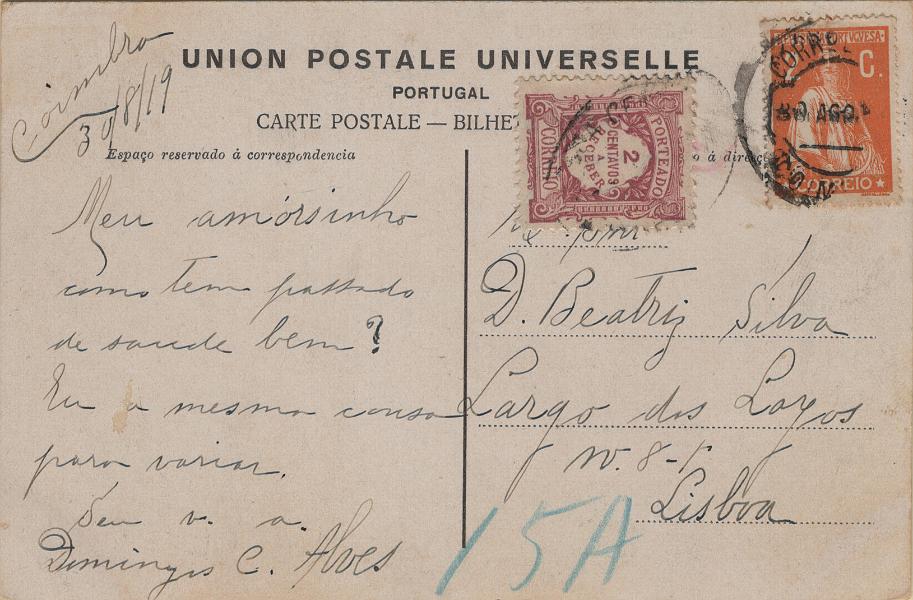 Coimbra
30/8/19
UNION POSTALE UNIVERSELLE
PORTUGAL
CARTE POSTALE — BILHE
Espaço reservado á correspondencia
o á direc
PORTEADO
2
CENTAVOS
A
RECEBER
CORREIO
PORTUGUESA
C.
CORREIO
CORRE
30 AGO.
Meu amôrsinho
como tem passado
de saude bem?
Eu a mesma cousa
para variar.
Seu v. a.
Domingos C. Alves
D. Beatriz Silva
Largo dos Loyos
Nº. 8-1º
Lisboa
15A